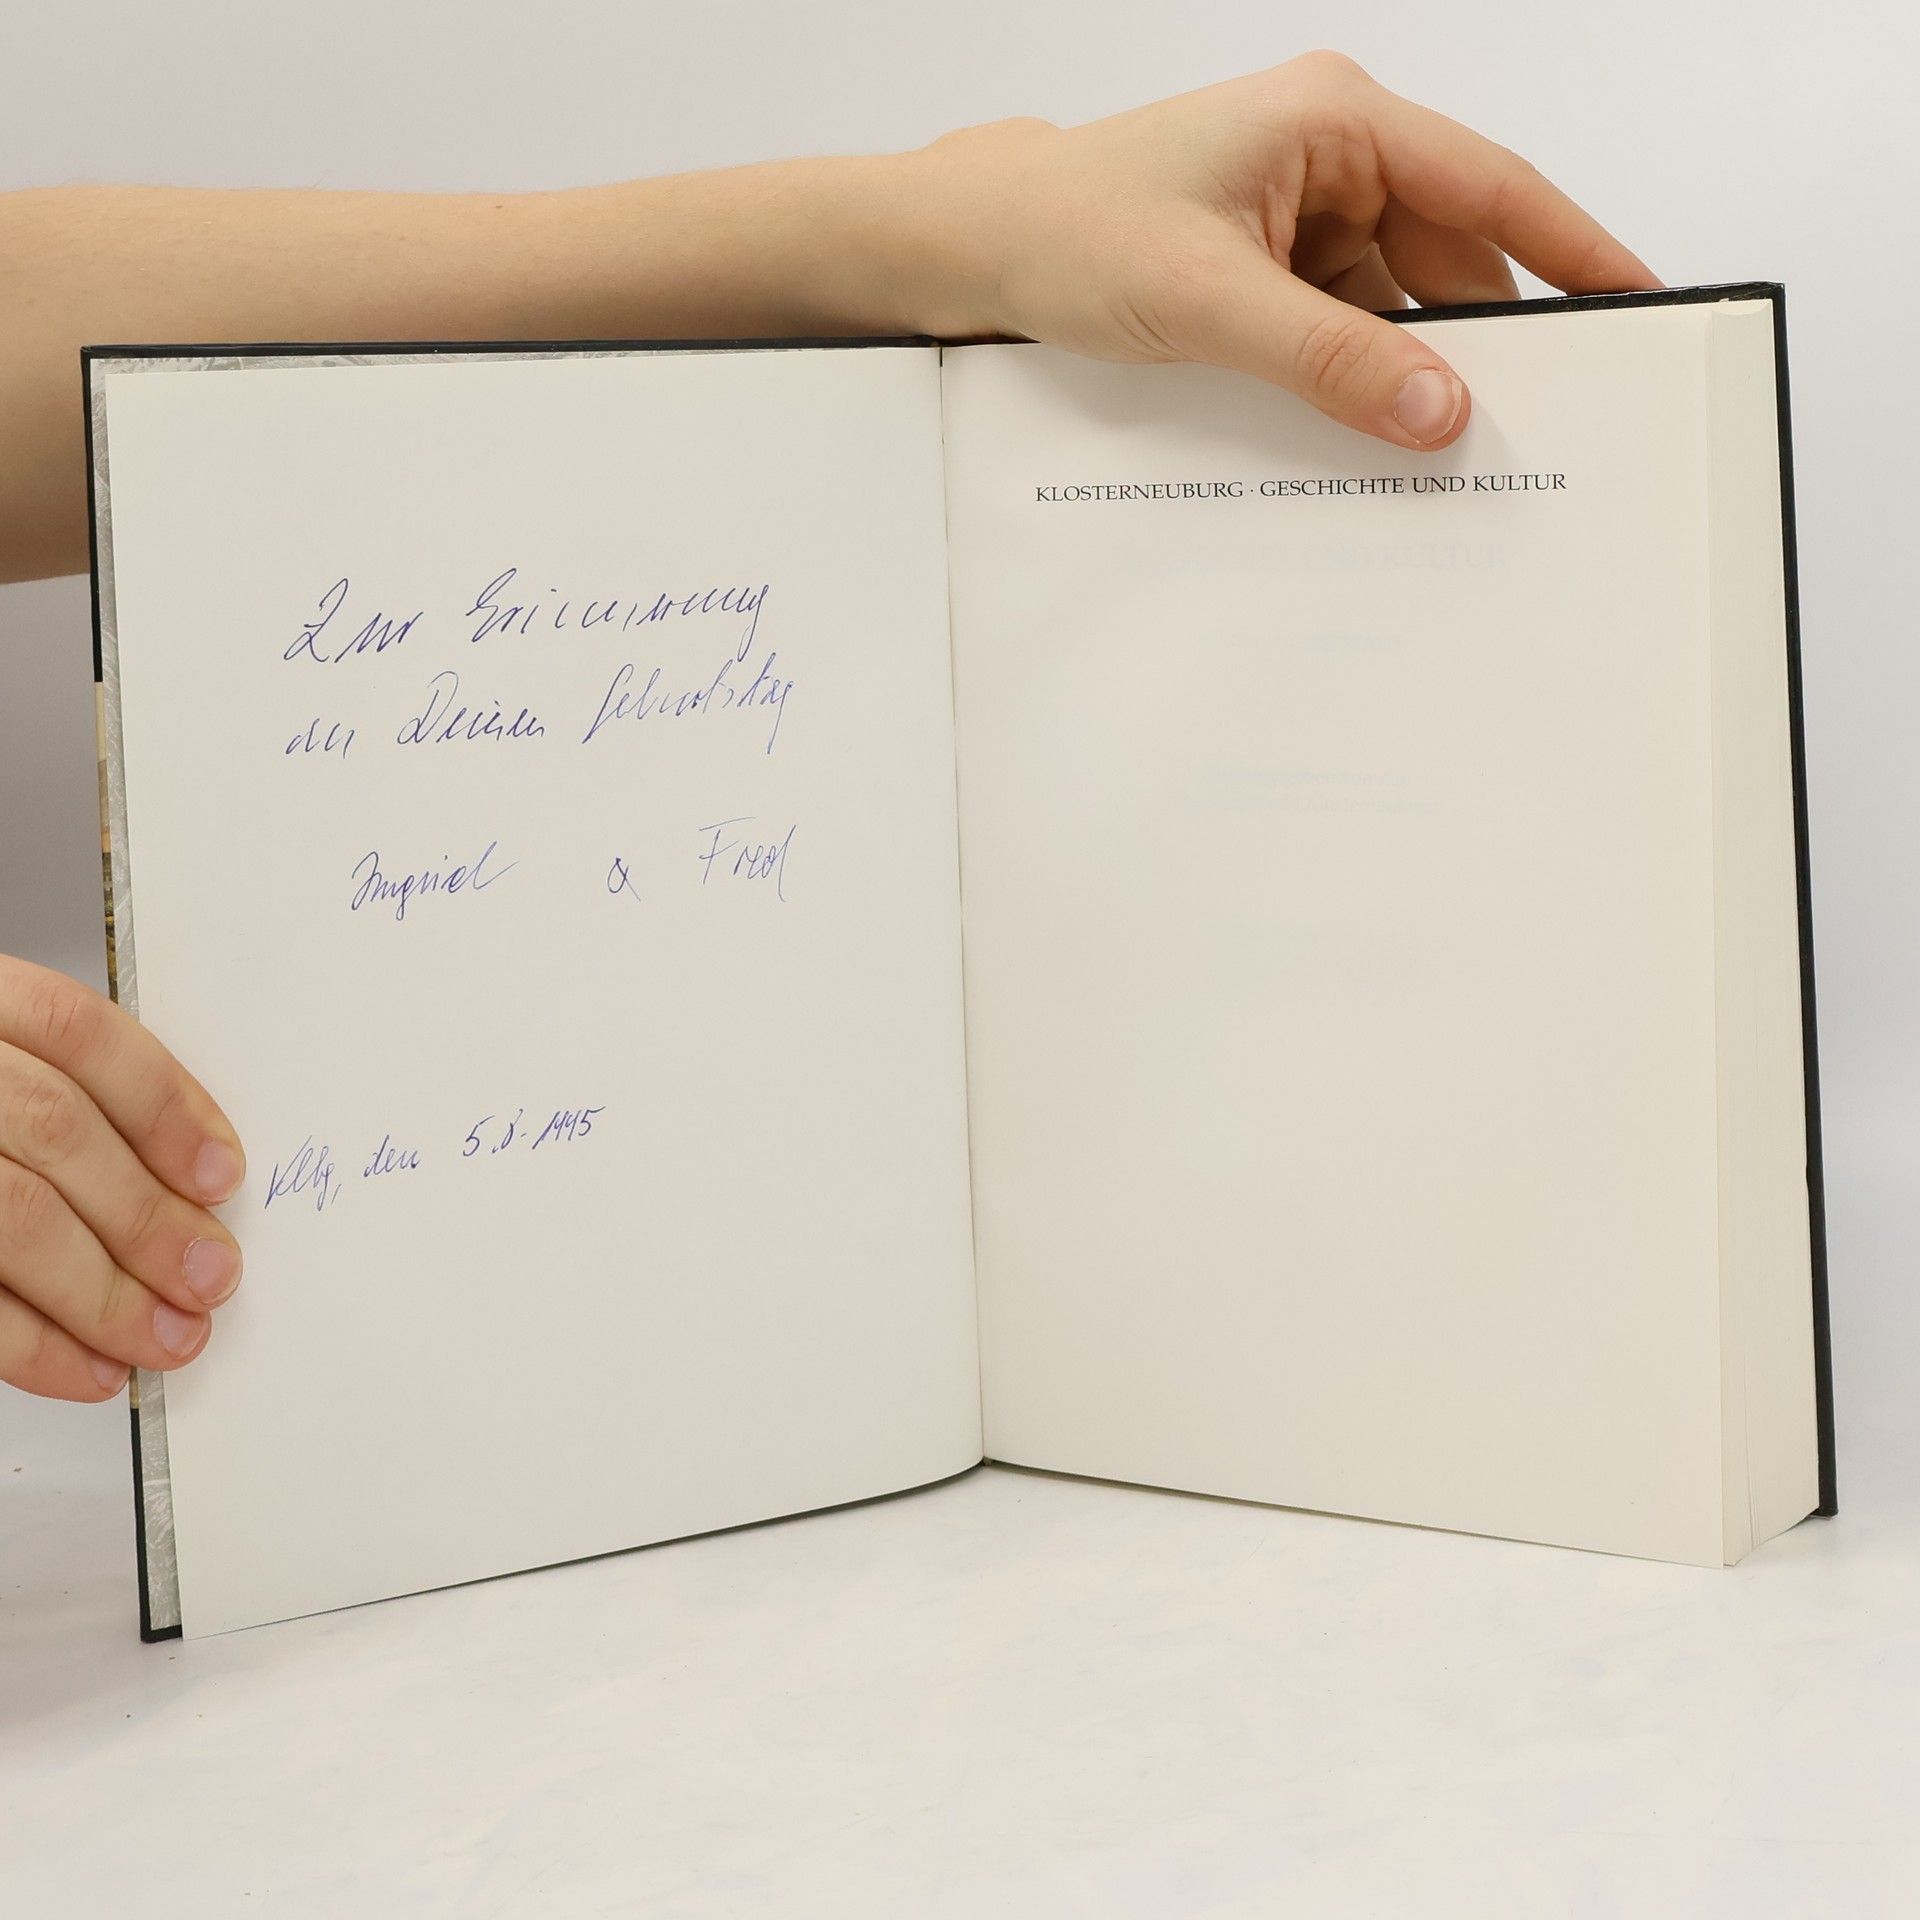 Zur Erinnerung
an Deinen Geburtstag
Ingrid & Fred
Klbg, den 5.8.1995
KLOSTERNEUBURG · GESCHICHTE UND KULTUR
UND KULTUR